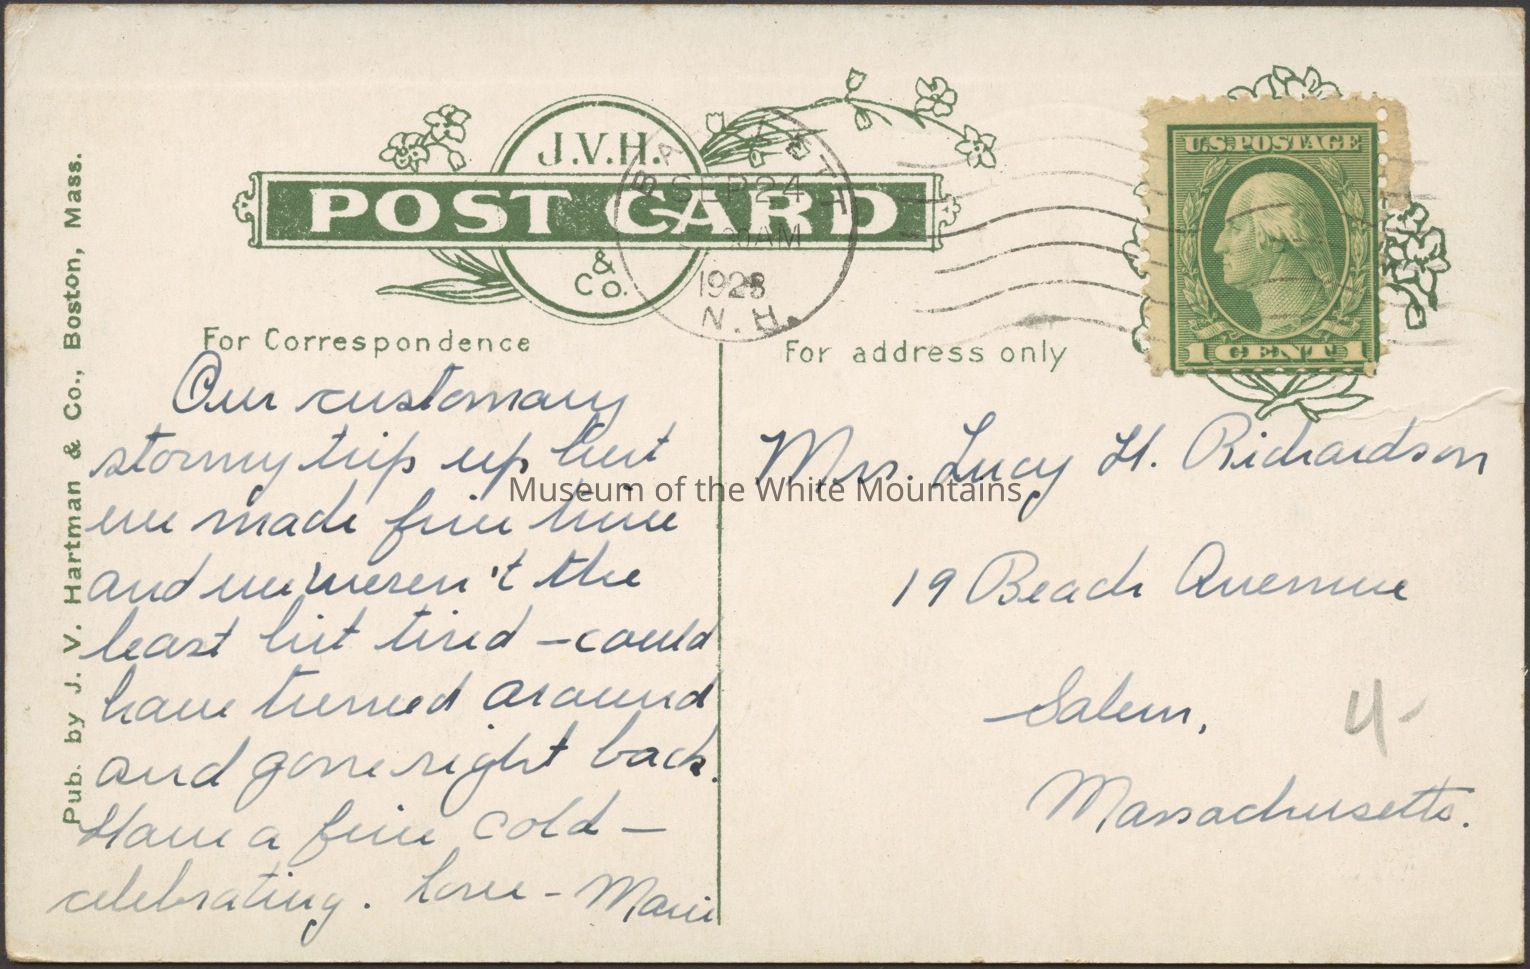 J.V.H.
POST CARD
& Co.
BARTLETT
SEP 24
30 AM
1928
N.H.
U.S. POSTAGE
1 CENT 1
Pub. by J. V. Hartman & Co., Boston, Mass.
For Correspondence
Our customary
stormy trip up but
we made fine time
and we weren't the
least bit tired – could
have turned around
and gone right back.
Have a fine cold –
celebrating. Love – Marie
For address only
Mrs. Lucy H. Richardson
19 Beach Avenue
Salem,
Massachusetts.
4-
Museum of the White Mountains